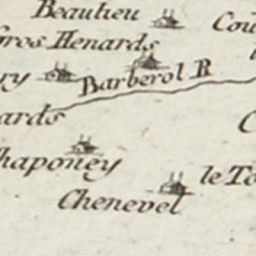 Beaulieu
Cou
Gros Henards
ry
Barberol R
ards
C
Chaponey
le To
Chenevel